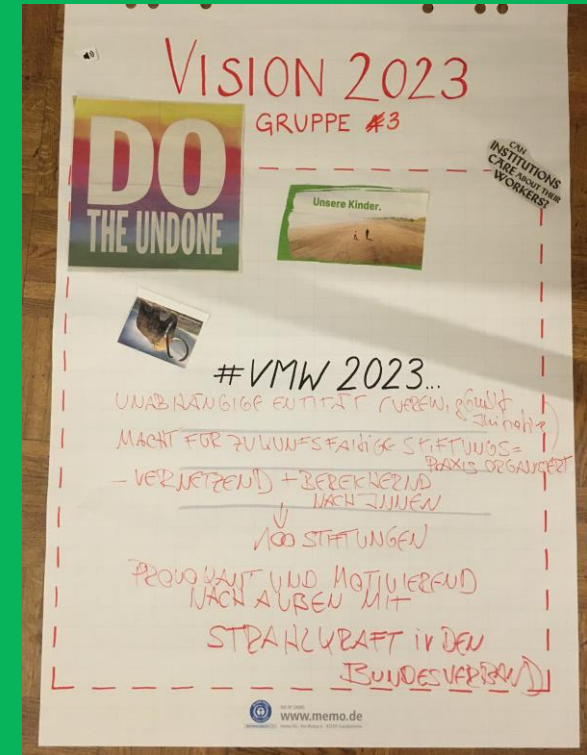 VISION 2023
GRUPPE #3
DO
THE UNDONE
Unsere Kinder.
CAN
INSTITUTIONS
CARE ABOUT THEIR
WORKERS?
#VMW 2023...
UNABHÄNGIGE ENTITÄT (VEREIN,
Initiative)
MACHT FÜR ZUKUNFSFÄHIGE STIFTUNGS=
PRAXIS ORGANISIERT
- VERNETZEND + BEREICHERND
NACH INNEN
100 STIFTUNGEN
PROVOKANT UND MOTIVIEREND
NACH AUßEN MIT
STRAHLKRAFT IN DEN
BUNDESVERBAND
www.memo.de